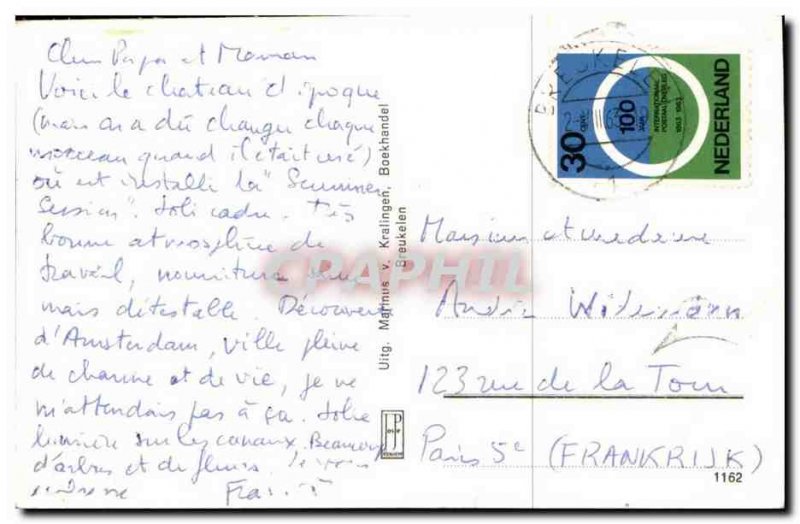 Cher Papa et Maman
Voici le chateau d'époque
(mais on a dû changer chaque
morceau quand il était usé)
où est installé la "Summer
Session". Joli cadre. Très
bonne atmosphère de
travail, nourriture
mais détestable. Découverte
d'Amsterdam, ville pleine
de charme et de vie, je ne
m'attendais pas à ça. Jolie
lumière sur les canaux. Beaucoup
d'arbres et de fleurs. Je vous
Uitg. Marinus v. Kralingen, Boekhandel
Breukelen
JosPe
CPAPHIL
BREUKELEN
30 cent
100 JAAR
INTERNATIONAAL
POSTAAL OVERLEG
1863 1963
NEDERLAND
Monsieur et madame
André
123 rue de la Tour
Paris 5e (FRANKRIJK)
1162